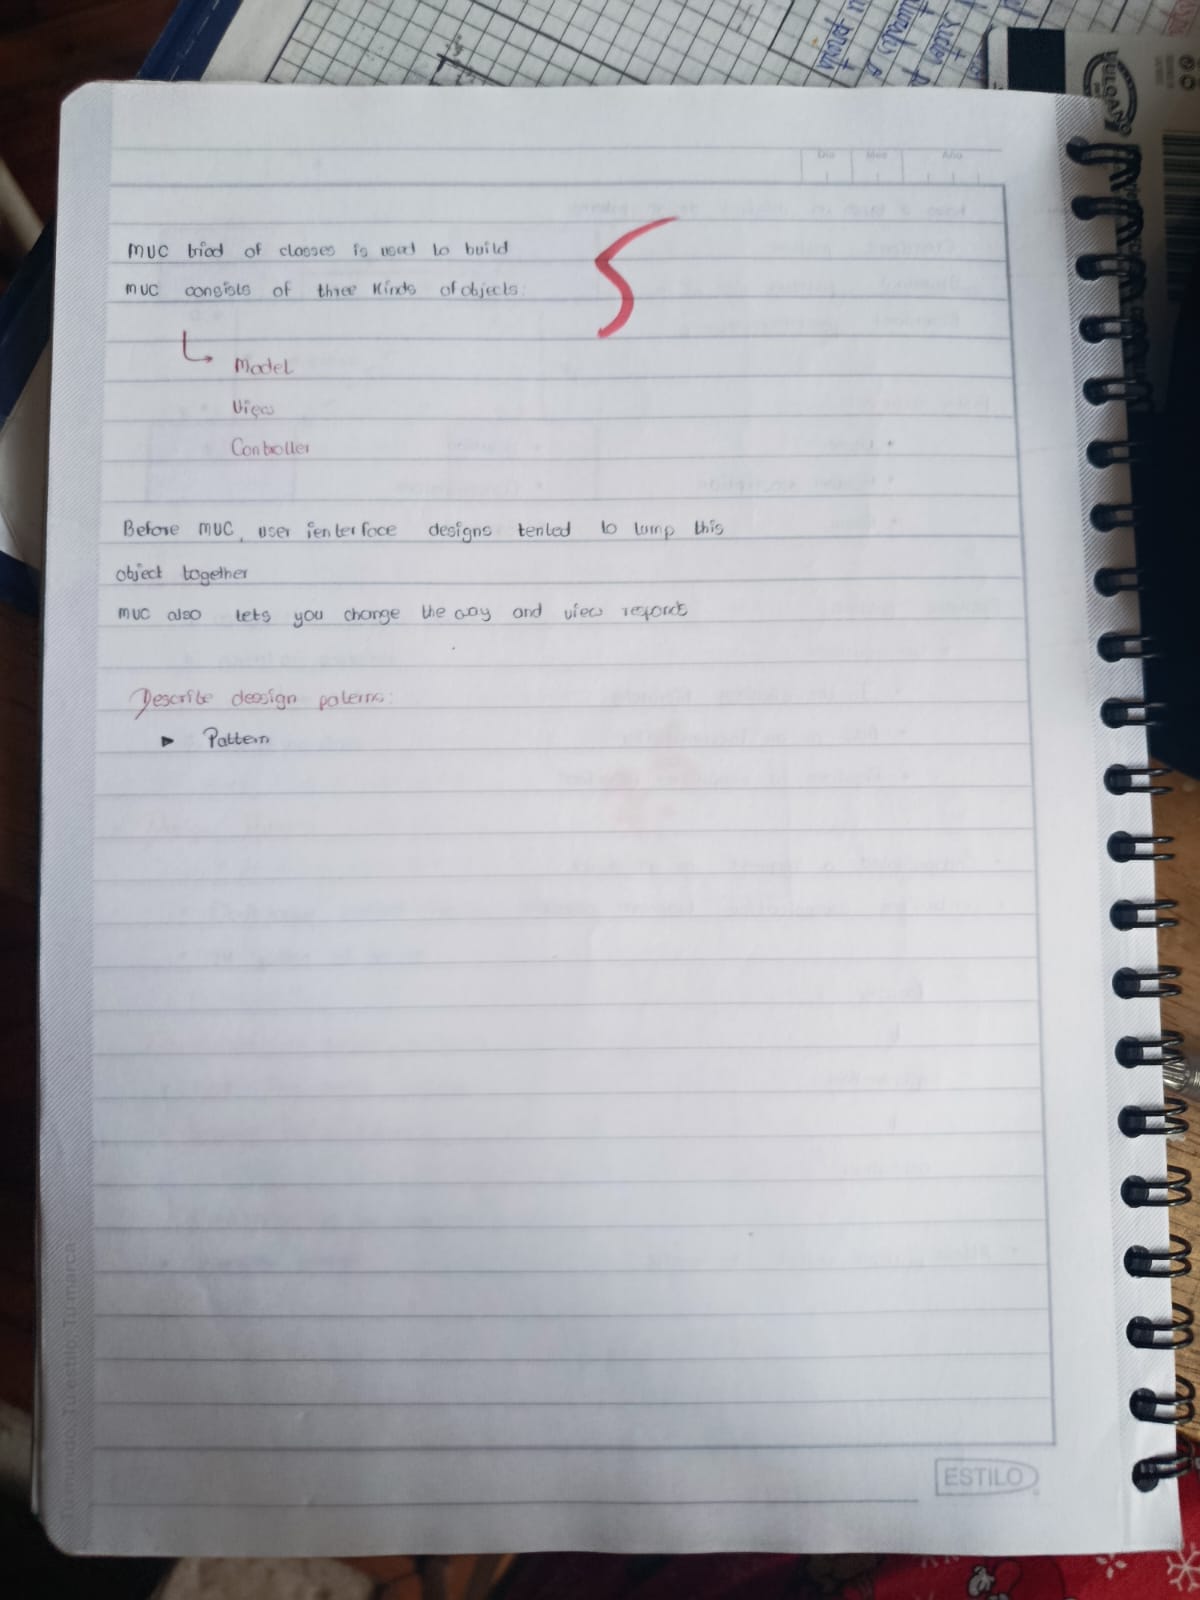 Dia Mes Año
MVC triad of classes is used to build
MVC consists of three kinds of objects:
Model
View
Controller
Before MVC, user ienterface designs tented to lump this
object together
MVC also lets you change the way and view reponds
Describe dessign paterns:
▶ Pattern
ESTILO
Tu mundo, Tu estilo, Tu marca